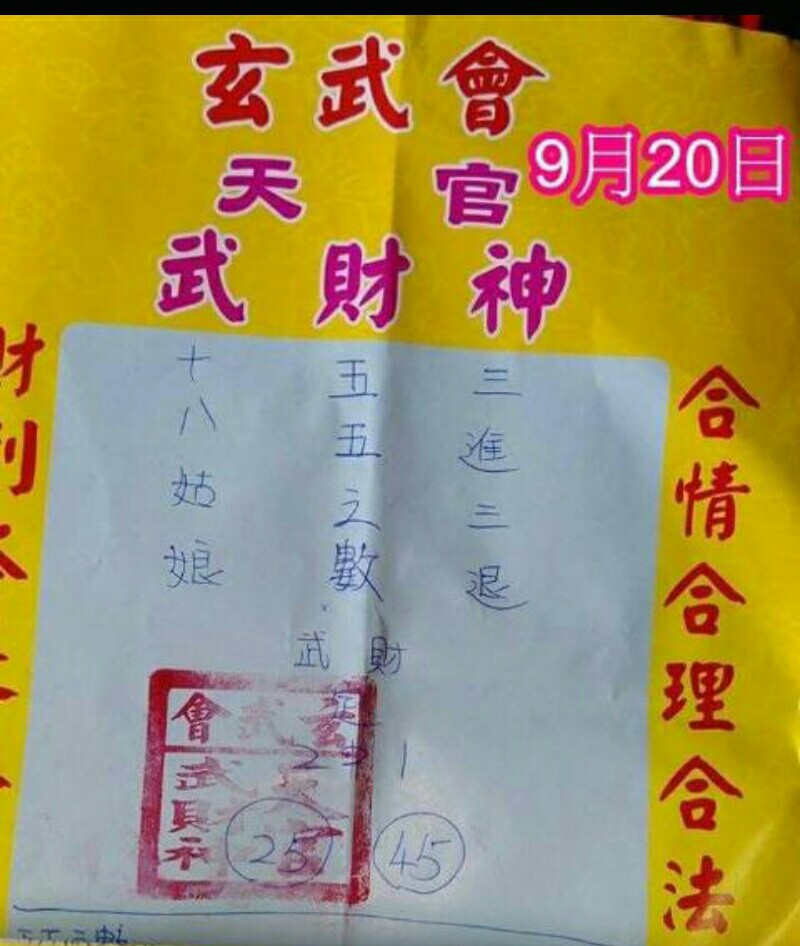 玄武會
天官
9月20日
武財神
三進三退
五五之數
十八姑娘
武財
2中1
25 45
合情合理合法
會武玄
武財神